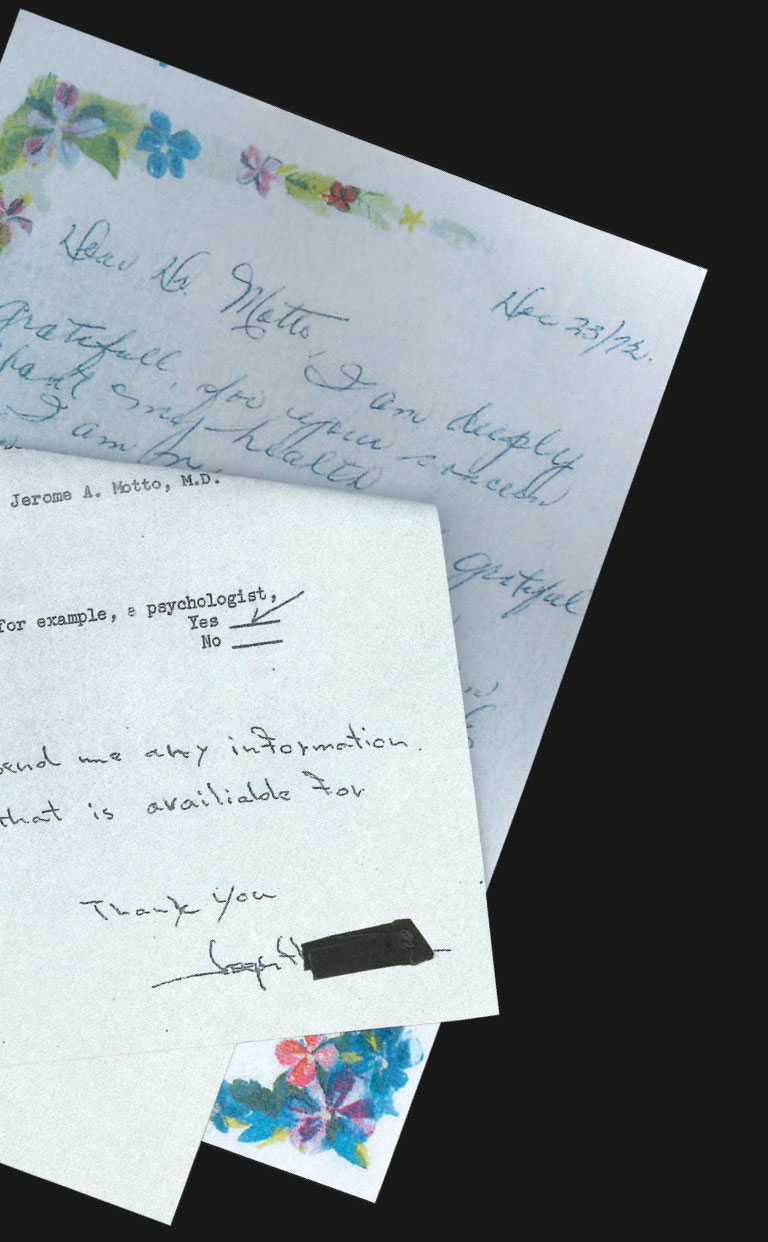 Dear Dr. Motto,
Dec 23/72.
I am deeply
grateful, for your concern
and health
I am
grateful
Jerome A. Motto, M.D.
for example, a psychologist,
Yes
No
send me any information.
that is availiable for
Thank you